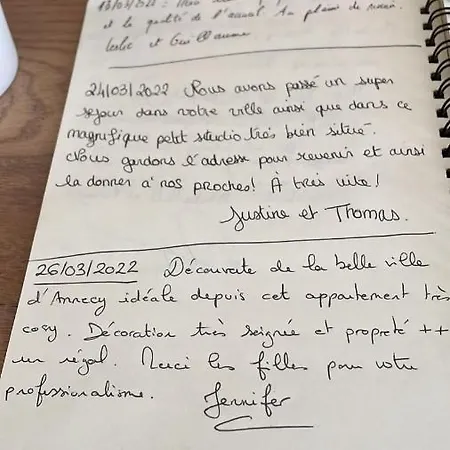 et la qualité de l'accueil. Au plaisir de revenir.
Leslie et Guillaume
24/03/2022 Nous avons passé un super
sejour dans votre ville ainsi que dans ce
magnifique petit studio très bien situé.
Nous gardons l'adresse pour revenir et ainsi
la donner à nos proches! À très vite!
Justine et Thomas.
26/03/2022 Découverte de la belle ville
d'Annecy idéale depuis cet appartement très
cosy. Décoration très soignée et propreté ++
un régal. Merci les filles pour votre
professionalisme.
Jennifer